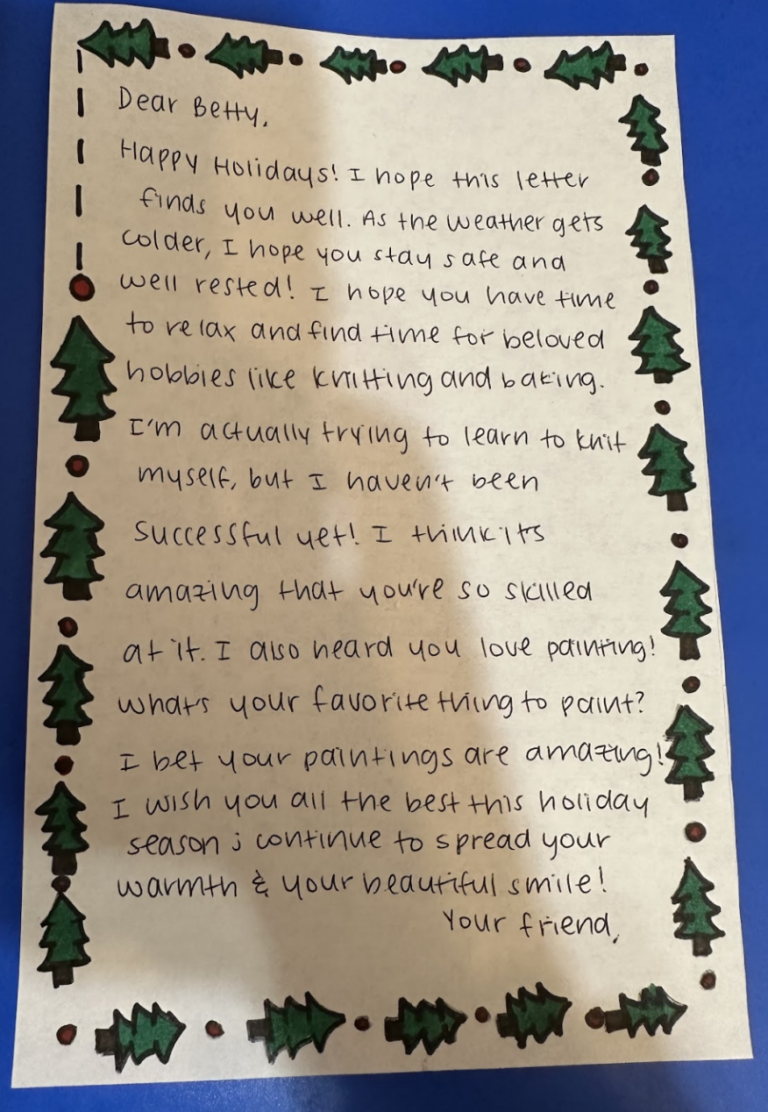 Dear Betty,
Happy Holidays! I hope this letter
finds you well. As the weather gets
colder, I hope you stay safe and
well rested! I hope you have time
to relax and find time for beloved
hobbies like knitting and baking.
I'm actually trying to learn to knit
myself, but I haven't been
successful yet! I think its
amazing that you're so skilled
at it. I also heard you love painting!
What's your favorite thing to paint?
I bet your paintings are amazing!
I wish you all the best this holiday
season ; continue to spread your
warmth & your beautiful smile!
Your friend,